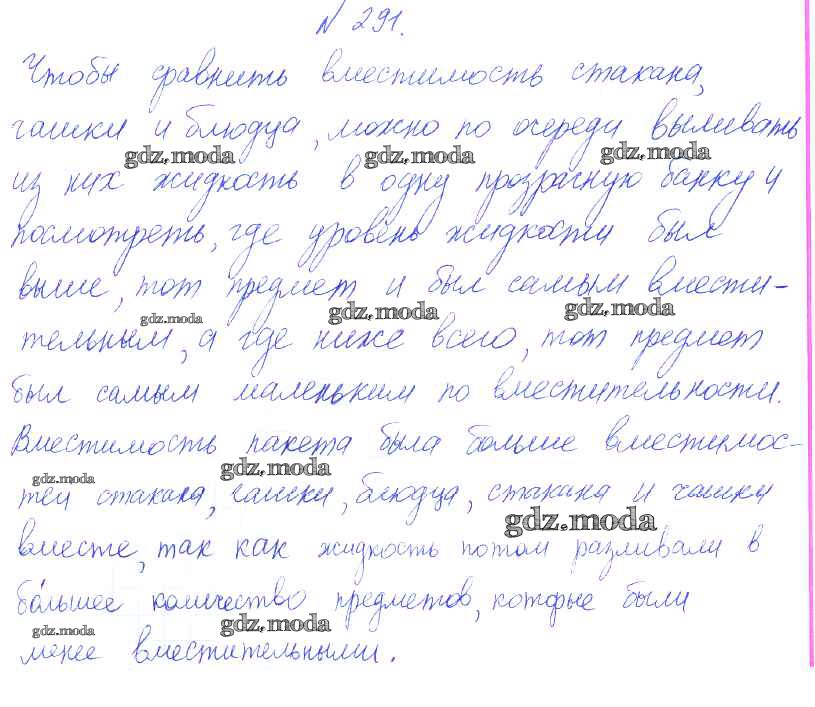 № 291.
Чтобы сравнить вместимость стакана,
чашки и блюдца, можно по очереди выливать
gdz.moda gdz.moda gdz.moda
из них жидкость в одну прозрачную банку и
посмотреть, где уровень жидкости был
выше, тот предмет и был самым вмести-
gdz.moda gdz.moda gdz.moda
тельным, а где ниже всего, тот предмет
был самым маленьким по вместительности.
Вместимость пакета была больше вместимос-
gdz.moda gdz.moda
тей стакана, чашки, блюдца, стакана и чашки
gdz.moda
вместе, так как жидкость потом разливали в
бо́льшее количество предметов, которые были
gdz.moda gdz.moda
менее вместительными.